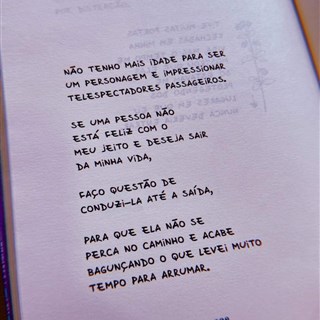 NÃO TENHO MAIS IDADE PARA SER
UM PERSONAGEM E IMPRESSIONAR
TELESPECTADORES PASSAGEIROS.
SE UMA PESSOA NÃO
ESTÁ FELIZ COM O
MEU JEITO E DESEJA SAIR
DA MINHA VIDA,
FAÇO QUESTÃO DE
CONDUZI-LA ATÉ A SAÍDA,
PARA QUE ELA NÃO SE
PERCA NO CAMINHO E ACABE
BAGUNÇANDO O QUE LEVEI MUITO
TEMPO PARA ARRUMAR.